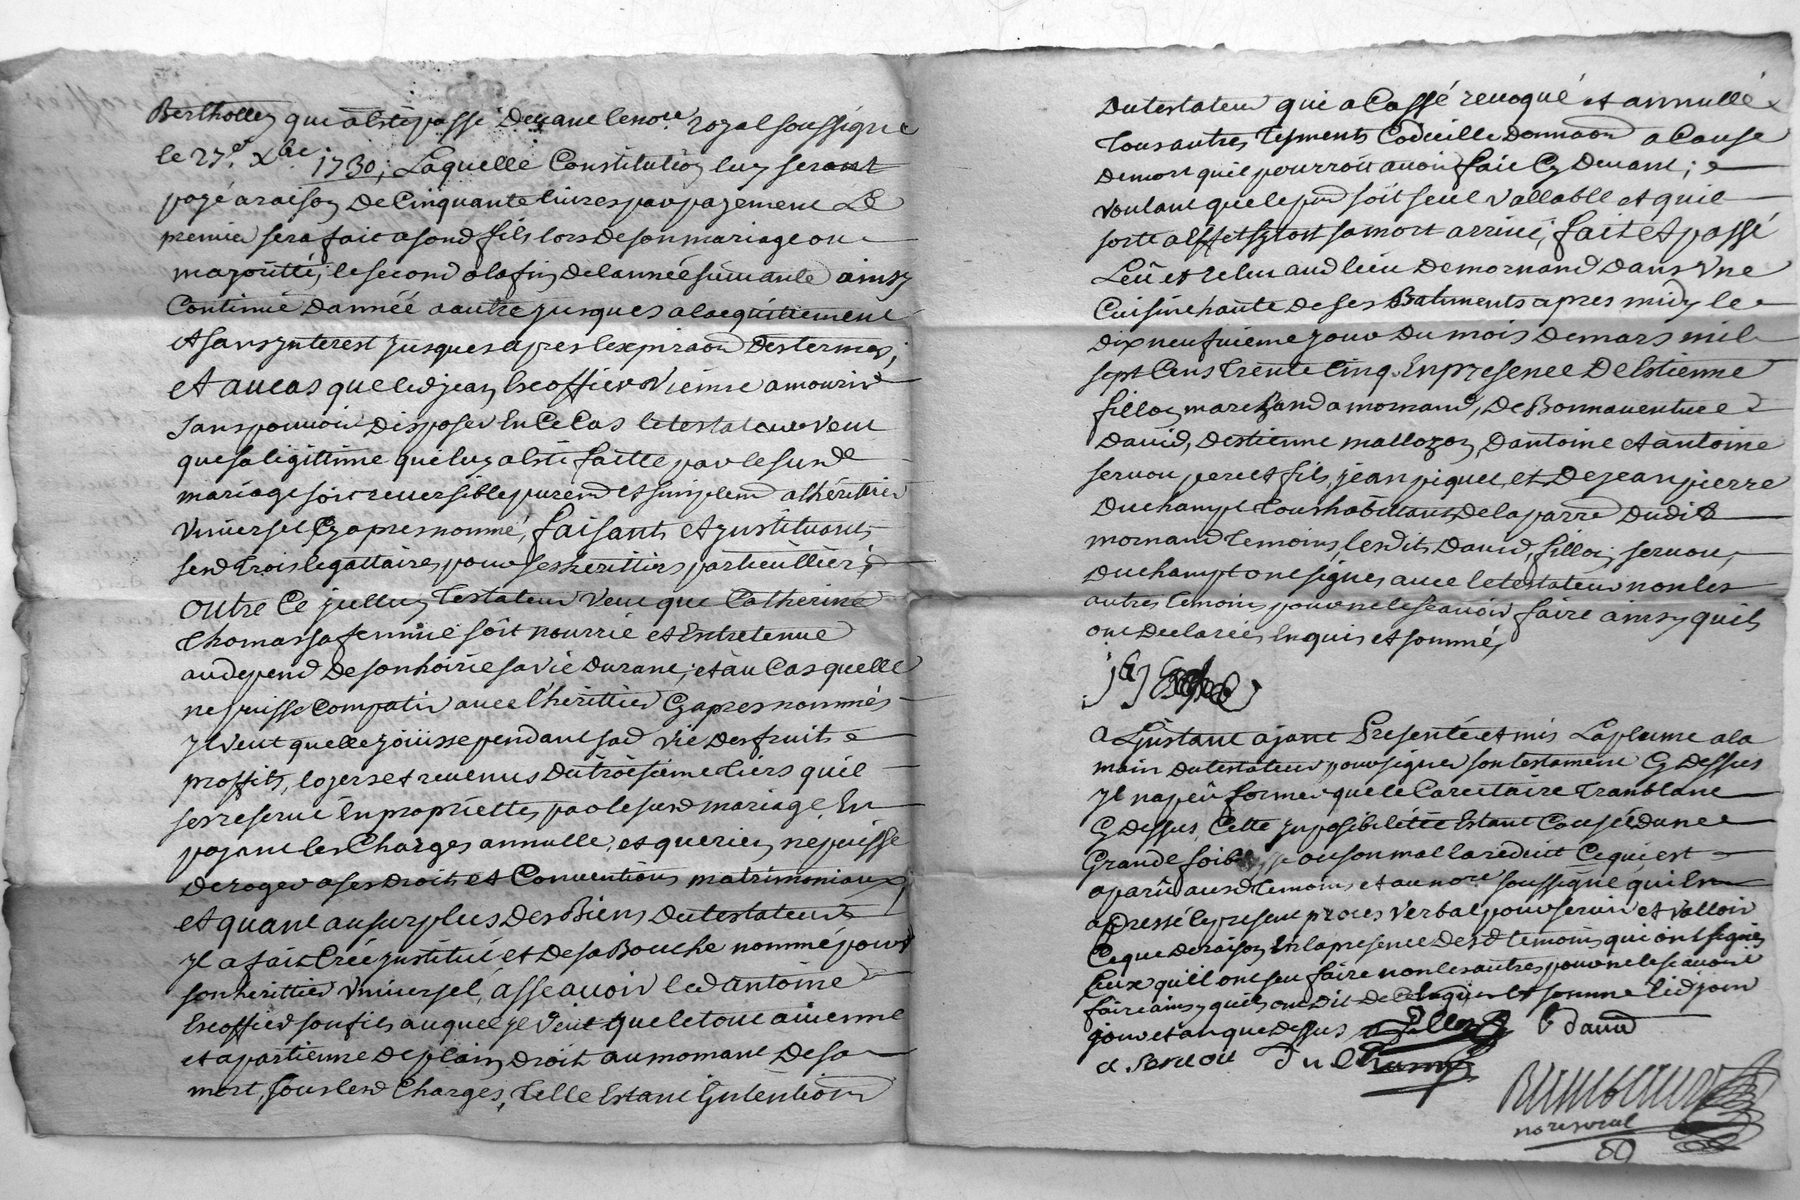 Berthollez que a esté passé devant le nore royal soussigné
le 27e Xbre 1730; Laquelle Constitution luy seront
payé a raison de Cinquante livres par payement Le
premier sera fait a sond fils lors de son mariage ou
majoritté; le second a la fin de lannée suivante ainsy
Continué dannée a autre jusques a lacquittement
et sans ynterest jusques apres lexpiraon des termes;
et au cas que led jean Escoffier vienne a mourir
sans pouvoir disposer En Ce Cas le testateur veut
que sa legittime que luy a esté faitte par le susd
mariage soit reversible purend et simplemd a lherittier
vniversel Cy apres nommé, faisants et ynstituants
sesd trois legattaires pour ses herittiers particuilliers;
outre Ce jcelluy Testateur veut que Catherine
Thomas sa femme soit nourrie et Entretenue
au depend de son hoirie sa vie durant; et au Cas quelle
ne puisse Compatir avec lherittier Cy apres nommés
yl veut quelle joüisse pendant sad vie des fruits e
proffits, loyers et revenus du troisieme tiers quil
ses reservé En propriette par le susd mariage En
payant les Charges annuelle, et que rien ne puisse
deroger a ses droits et Conventions matrimoniaux,
et quant au surplus des Biens du testateur
yl a fait Créé ynstitué et de sa Bouche nommé pour
son herittier vniversel, assavoir led antoine
Escoffier son fils auquel yl veut que le tout avienne
et apartienne de plain droit au momant de sa
mort, sous lesd Charges, Telle Estant Lintention
du testateur qui a Cassé revoqué et annullé
tous autres Testments Codicille donnaon a Cause
de mort quil pourroit avoir fait Cy devant; e
voulant que le pnt soit seul vallable et quil
sorte a Effet sytost sa mort arrivé, fait et passé
Leu et releu aud lieu de mornand dans vne
Cuisine haute de ses Batiments apres midy le
dix neufvieme jour du mois de mars mil
sept Cens trente Cinq En presence d'Estienne
fillon marchand a mornand, de Bonnaventure
david, destienne mallozon, dantoine et antoine
servou pere et fils, jean piquet, et de jean pierre
duchampt tous habitans de la parre dudit
mornand temoins, lesdits david, fillon, servou,
duchampt ont signes avec le testateur non les
autres temoins pour ne le scavoir faire ainsy quils
ont declarés Enquis et sommé,
a Linstant ajant Presenté et mis La plume a la
main du testateur pour signer son testament Cy dessus
yl na peu former que le Carectaire tramblant
Cy dessus, Cette ynposibilitée Estant Causée dune
Grande foiblesse ou son mal la reduit Ce qui est
aparu ausd temoins et au nore soussigné qui En
a dressé le present proces verbal pour servir et valloir
Ce que de raison En la presence desd temoins qui ont signés
Ceux qui l'ont sceu faire non les autres pour ne le scavoir
faire ainsy quils ont dit de Ce Enquis et sommé lesd jour
jour et an que dessus fillon b david
a servou duchampt
nore royal